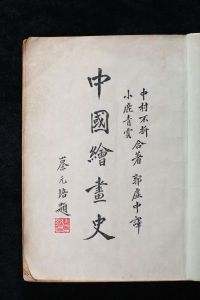 中村不折
小鹿青雲
合著 郭虛中譯
中國繪畫史
蔡元培題